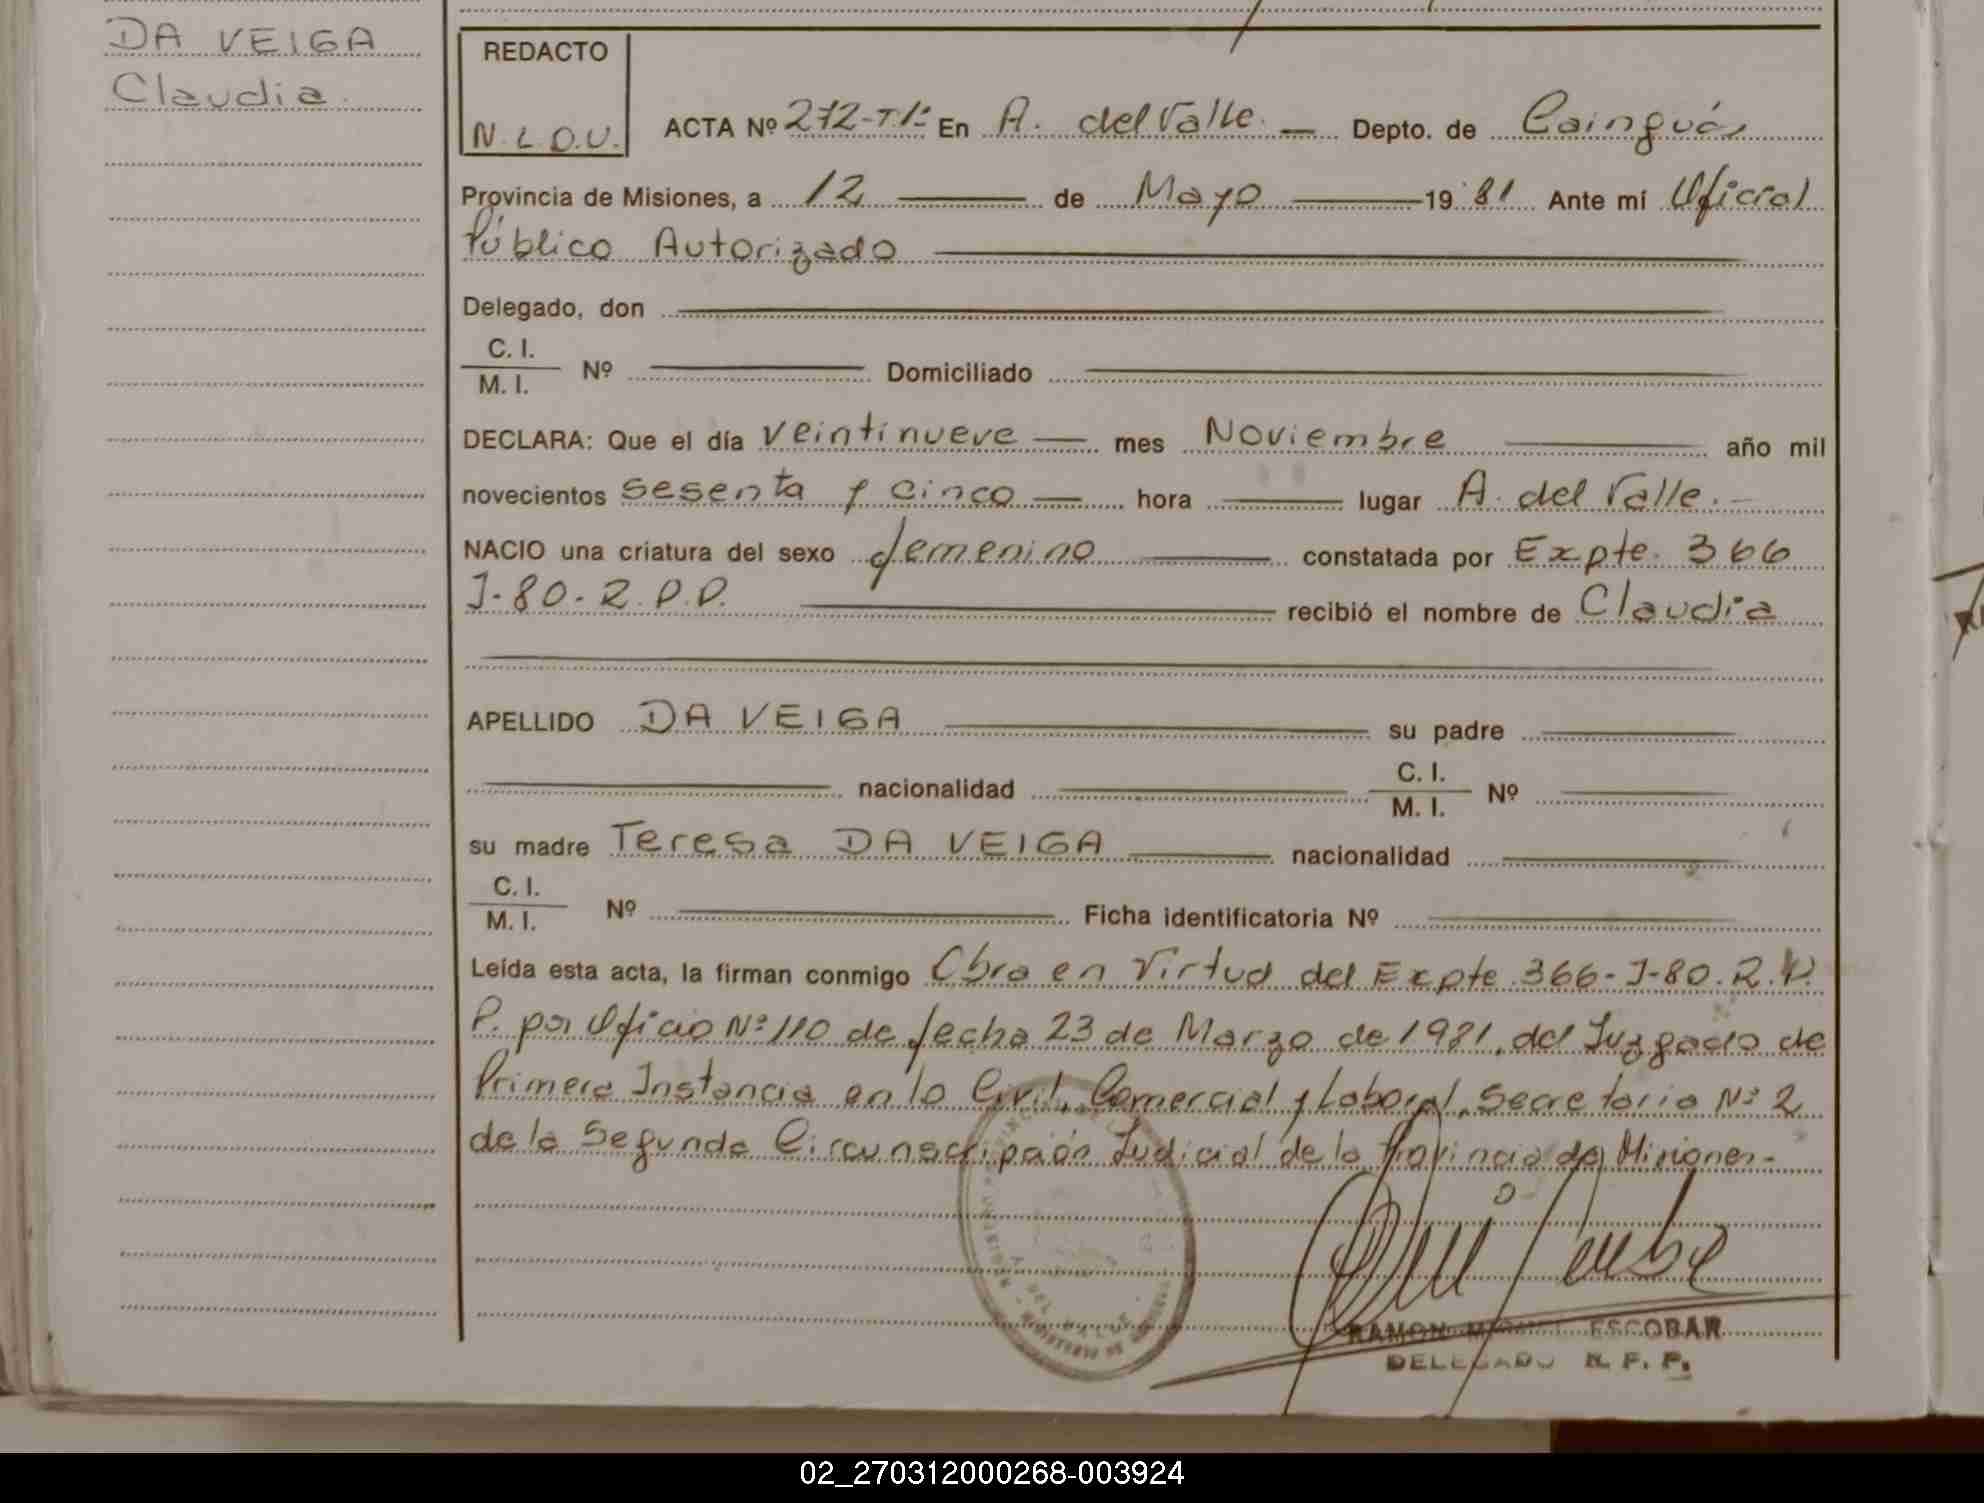 DA VEIGA
Claudia
REDACTO
N.L.D.V.
ACTA Nº 272-T1º En A. del Valle. Depto. de Cainguás
Provincia de Misiones, a 12 de Mayo 1981 Ante mí Oficial
Público Autorizado
Delegado, don
C. I.
M. I. Nº Domiciliado
DECLARA: Que el día veintinueve mes Noviembre año mil
novecientos sesenta y cinco hora lugar A. del Valle.
NACIO una criatura del sexo femenino constatada por Expte. 366
J-80-R.P.P. recibió el nombre de Claudia
APELLIDO DA VEIGA su padre
nacionalidad C. I.
M. I. Nº
su madre Teresa DA VEIGA nacionalidad
C. I.
M. I. Nº Ficha identificatoria Nº
Leída esta acta, la firman conmigo Obra en Virtud del Expte. 366-J-80.R.P.
P. por Oficio Nº 110 de fecha 23 de Marzo de 1981, del Juzgado de
Primera Instancia en lo Civil, Comercial y Laboral, Secretaria Nº 2
de la Segunda Circunscripción Judicial de la Provincia de Misiones.-
A. DEL VALLE
RAMON MIGUEL ESCOBAR
DELEGADO R. P. P.
02_270312000268-003924